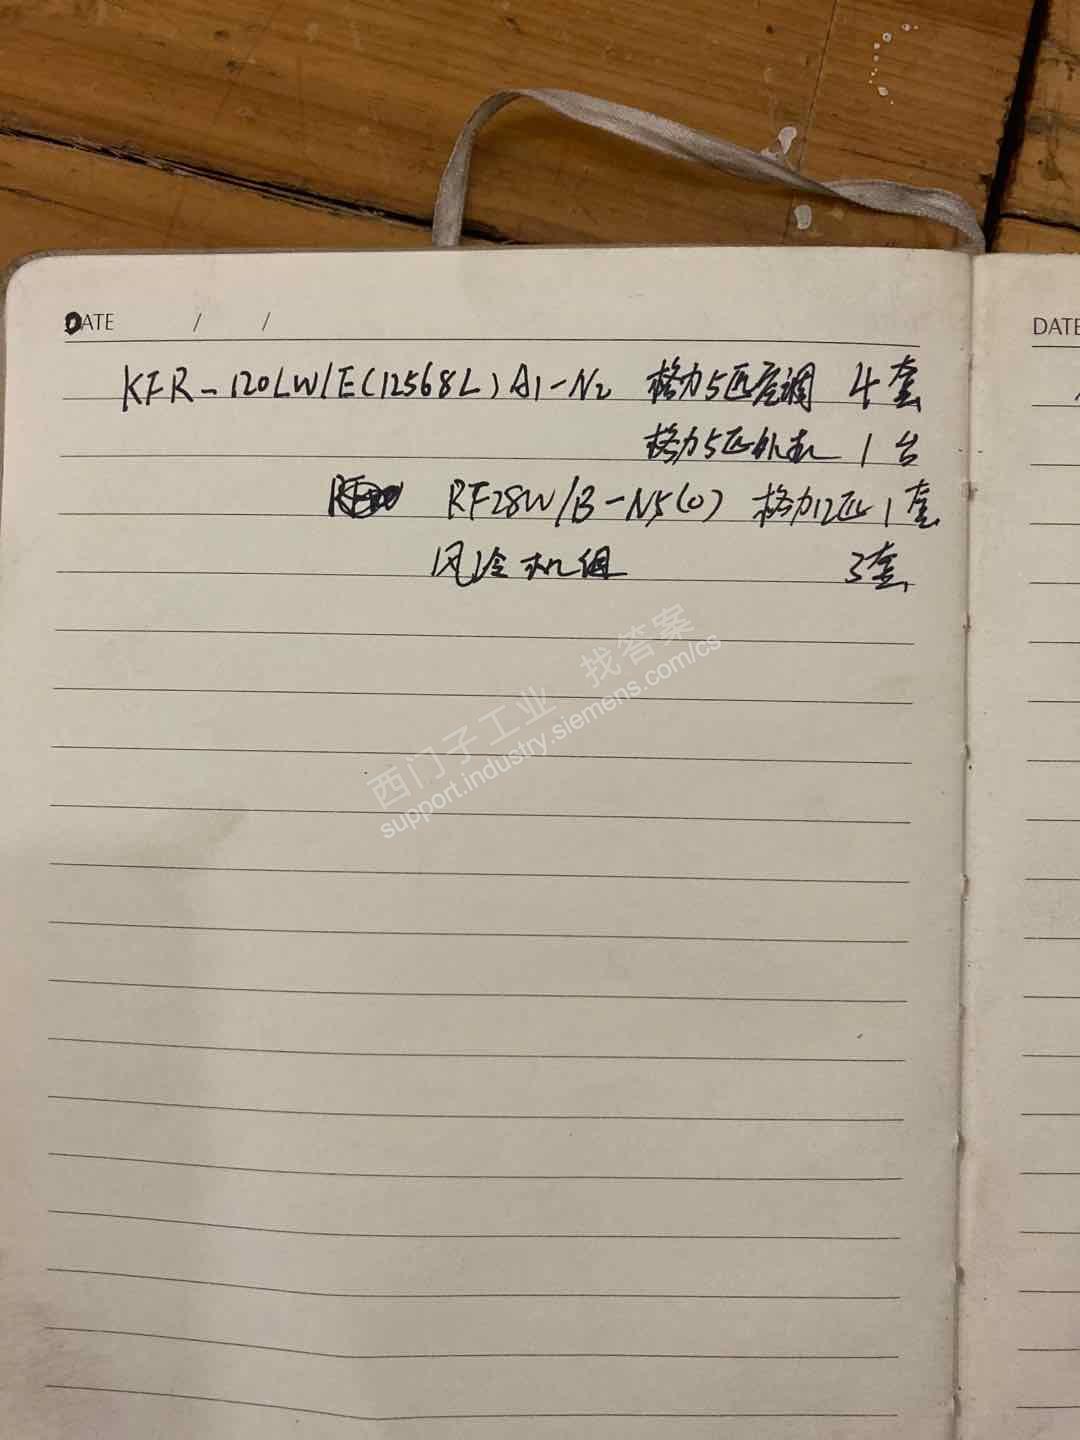 DATE / /
DATE
KFR-120LW/E(12568L)A1-N2 格力5匹空调 4套
格力5匹外机 1台
RF28W/B-N5(0) 格力12匹 1套
风冷机组 3套
西门子工业 找答案
support.industry.siemens.com/cs